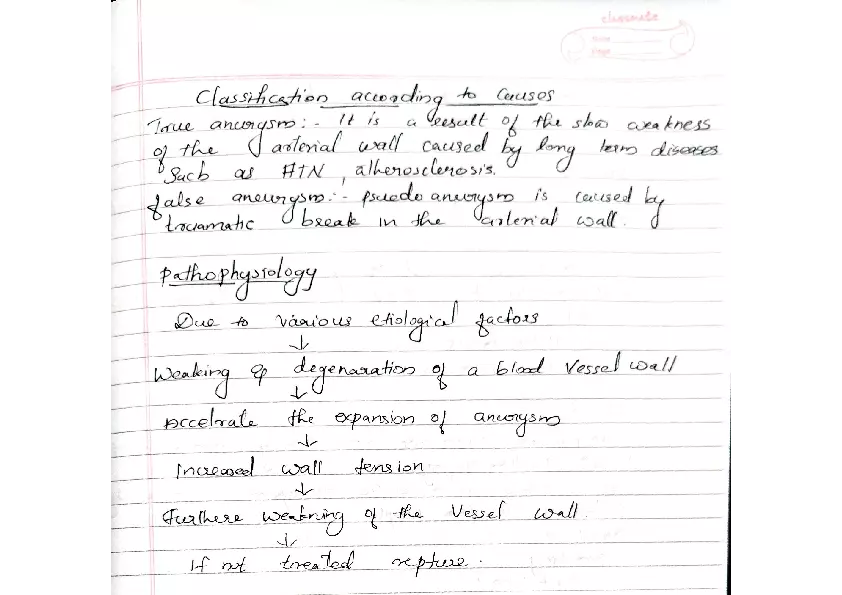 classmate
Name
Page
Classification according to Causes
True aneurysm:- It is a result of the slow weakness
of the arterial wall caused by long term diseases
Such as HTN, atherosclerosis.
false aneurysm:- psuedo aneurysm is caused by
traumatic break in the arterial wall.
Pathophysiology
Due to various etiological factors
↓
Weaking & degenaration of a blood vessel wall
↓
Accelrate the expansion of aneurysm
↓
Increased wall tension
↓
Furthere weakning of the Vessel wall.
↓
If not treated repture.